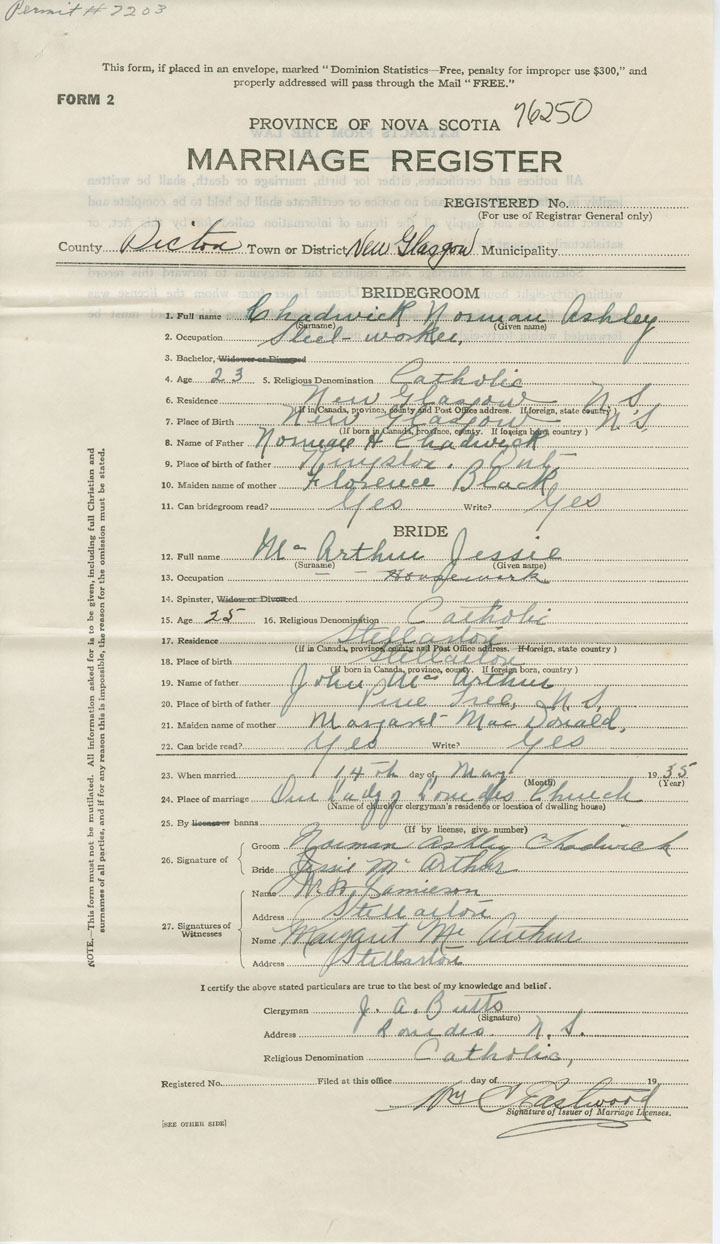 Permit # 7203
This form, if placed in an envelope, marked "Dominion Statistics—Free, penalty for improper use $300," and
properly addressed will pass through the Mail "FREE."
FORM 2
PROVINCE OF NOVA SCOTIA 76250
MARRIAGE REGISTER
REGISTERED No.
(For use of Registrar General only)
County Pictou Town or District New Glasgow Municipality
BRIDEGROOM
1. Full name Chadwick Norman Ashley
(Surname) (Given name)
2. Occupation Steel-worker,
3. Bachelor, Widower or Divorced
4. Age 23 5. Religious Denomination Catholic
6. Residence New Glasgow N.S.
(If in Canada, province, county and Post Office address. If foreign, state country)
7. Place of Birth New Glasgow N.S,
(If born in Canada, province, county. If foreign born, country)
8. Name of Father Norman H Chadwick
9. Place of birth of father Kingston. Ont
10. Maiden name of mother Florence Black
11. Can bridegroom read? Yes Write? Yes
BRIDE
12. Full name McArthur Jessie
(Surname) (Given name)
13. Occupation Housework
14. Spinster, Widow or Divorced
15. Age 25 16. Religious Denomination Catholic
17. Residence Stellarton
(If in Canada, province, county and Post Office address. If foreign, state country)
18. Place of birth Stellarton
(If born in Canada, province, county. If foreign born, country)
19. Name of father John McArthur
20. Place of birth of father Pine Tree, N.S,
21. Maiden name of mother Margaret MacDonald,
22. Can bride read? Yes Write? Yes
23. When married 14th day of May 1935
(Month) (Year)
24. Place of marriage Our Lady of Lourdes Church
(Name of church or clergyman's residence or location of dwelling house)
25. By licenses or banns
(If by license, give number)
26. Signature of
Groom Norman Ashley Chadwick
Bride Jessie McArthur
27. Signatures of Witnesses
Name Jamieson
Address Stellarton
Name Margaret McArthur
Address Stellarton
I certify the above stated particulars are true to the best of my knowledge and belief.
Clergyman J. A. Butts
(Signature)
Address Lourdes. N.S.
Religious Denomination Catholic,
Registered No. Filed at this office day of 19
Wm C Eastwood
Signature of Issuer of Marriage Licenses.
[SEE OTHER SIDE]
NOTE.—This form must not be mutilated. All information asked for is to be given, including full Christian and
surnames of all parties, and if for any reason this is impossible, the reason for the omission must be stated.